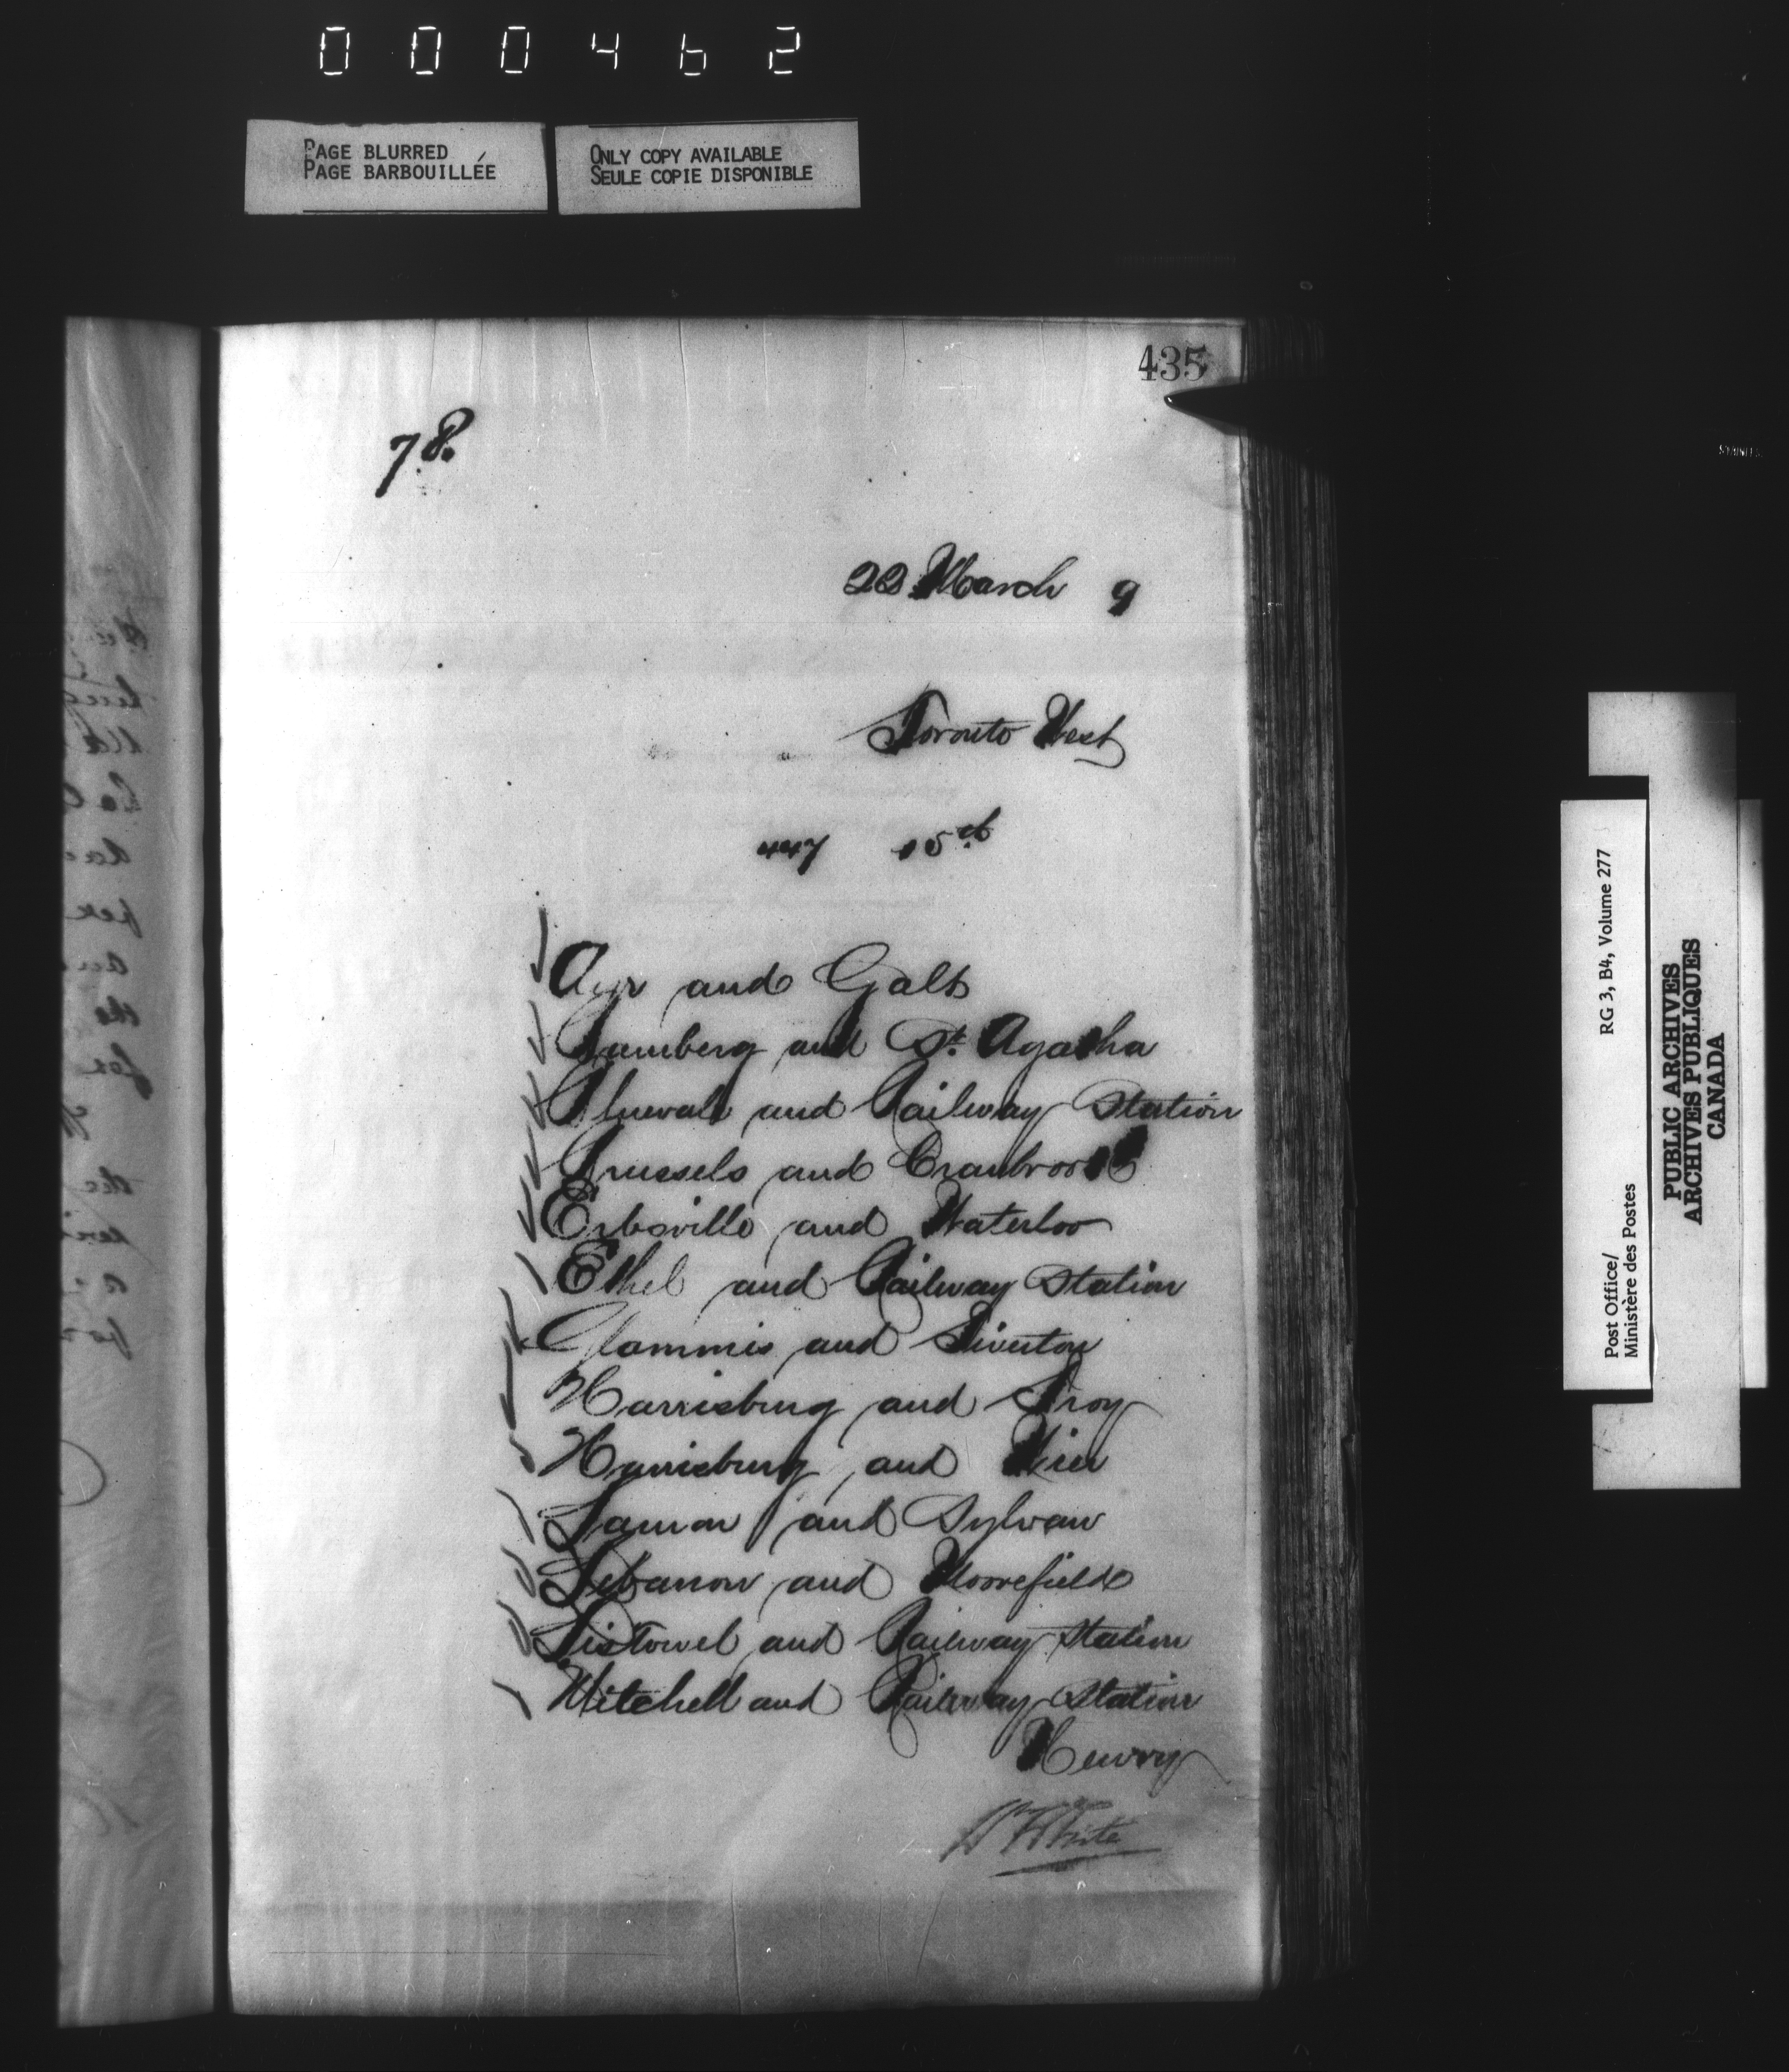 000462
PAGE BLURRED
PAGE BARBOUILLÉE
ONLY COPY AVAILABLE
SEULE COPIE DISPONIBLE
435
78.
22 March 9
Toronto West
447 15th
Ayr and Galt
Bamberg and St. Agatha
Bluevale and Railway Station
Brussels and Cranbrook
Erbsville and Waterloo
Ethel and Railway Station
Glammis and Tiverton
Harrisburg and Troy
Harrisburg and
Lamon and Sylvan
Lebanon and Moorefield
Listowel and Railway Station
Mitchell and Railway Station
Newry
W White
Post Office/
Ministère des Postes
RG 3, B4, Volume 277
PUBLIC ARCHIVES
ARCHIVES PUBLIQUES
CANADA